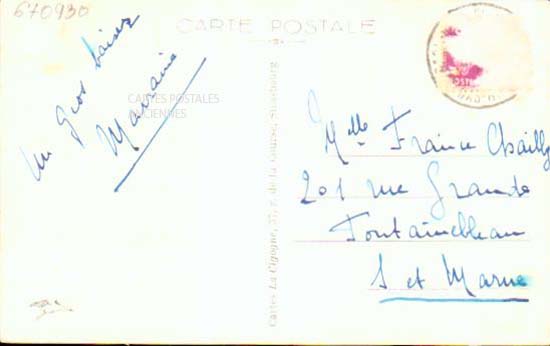 670930
CARTE POSTALE
Un gros baiser
Marraine
CARTES POSTALES
ANCIENNES
Cartes La Cigogne, 37, r. de la Course, Strasbourg
Mlle France Chailly
201 rue Grande
Fontainebleau
S et Marne